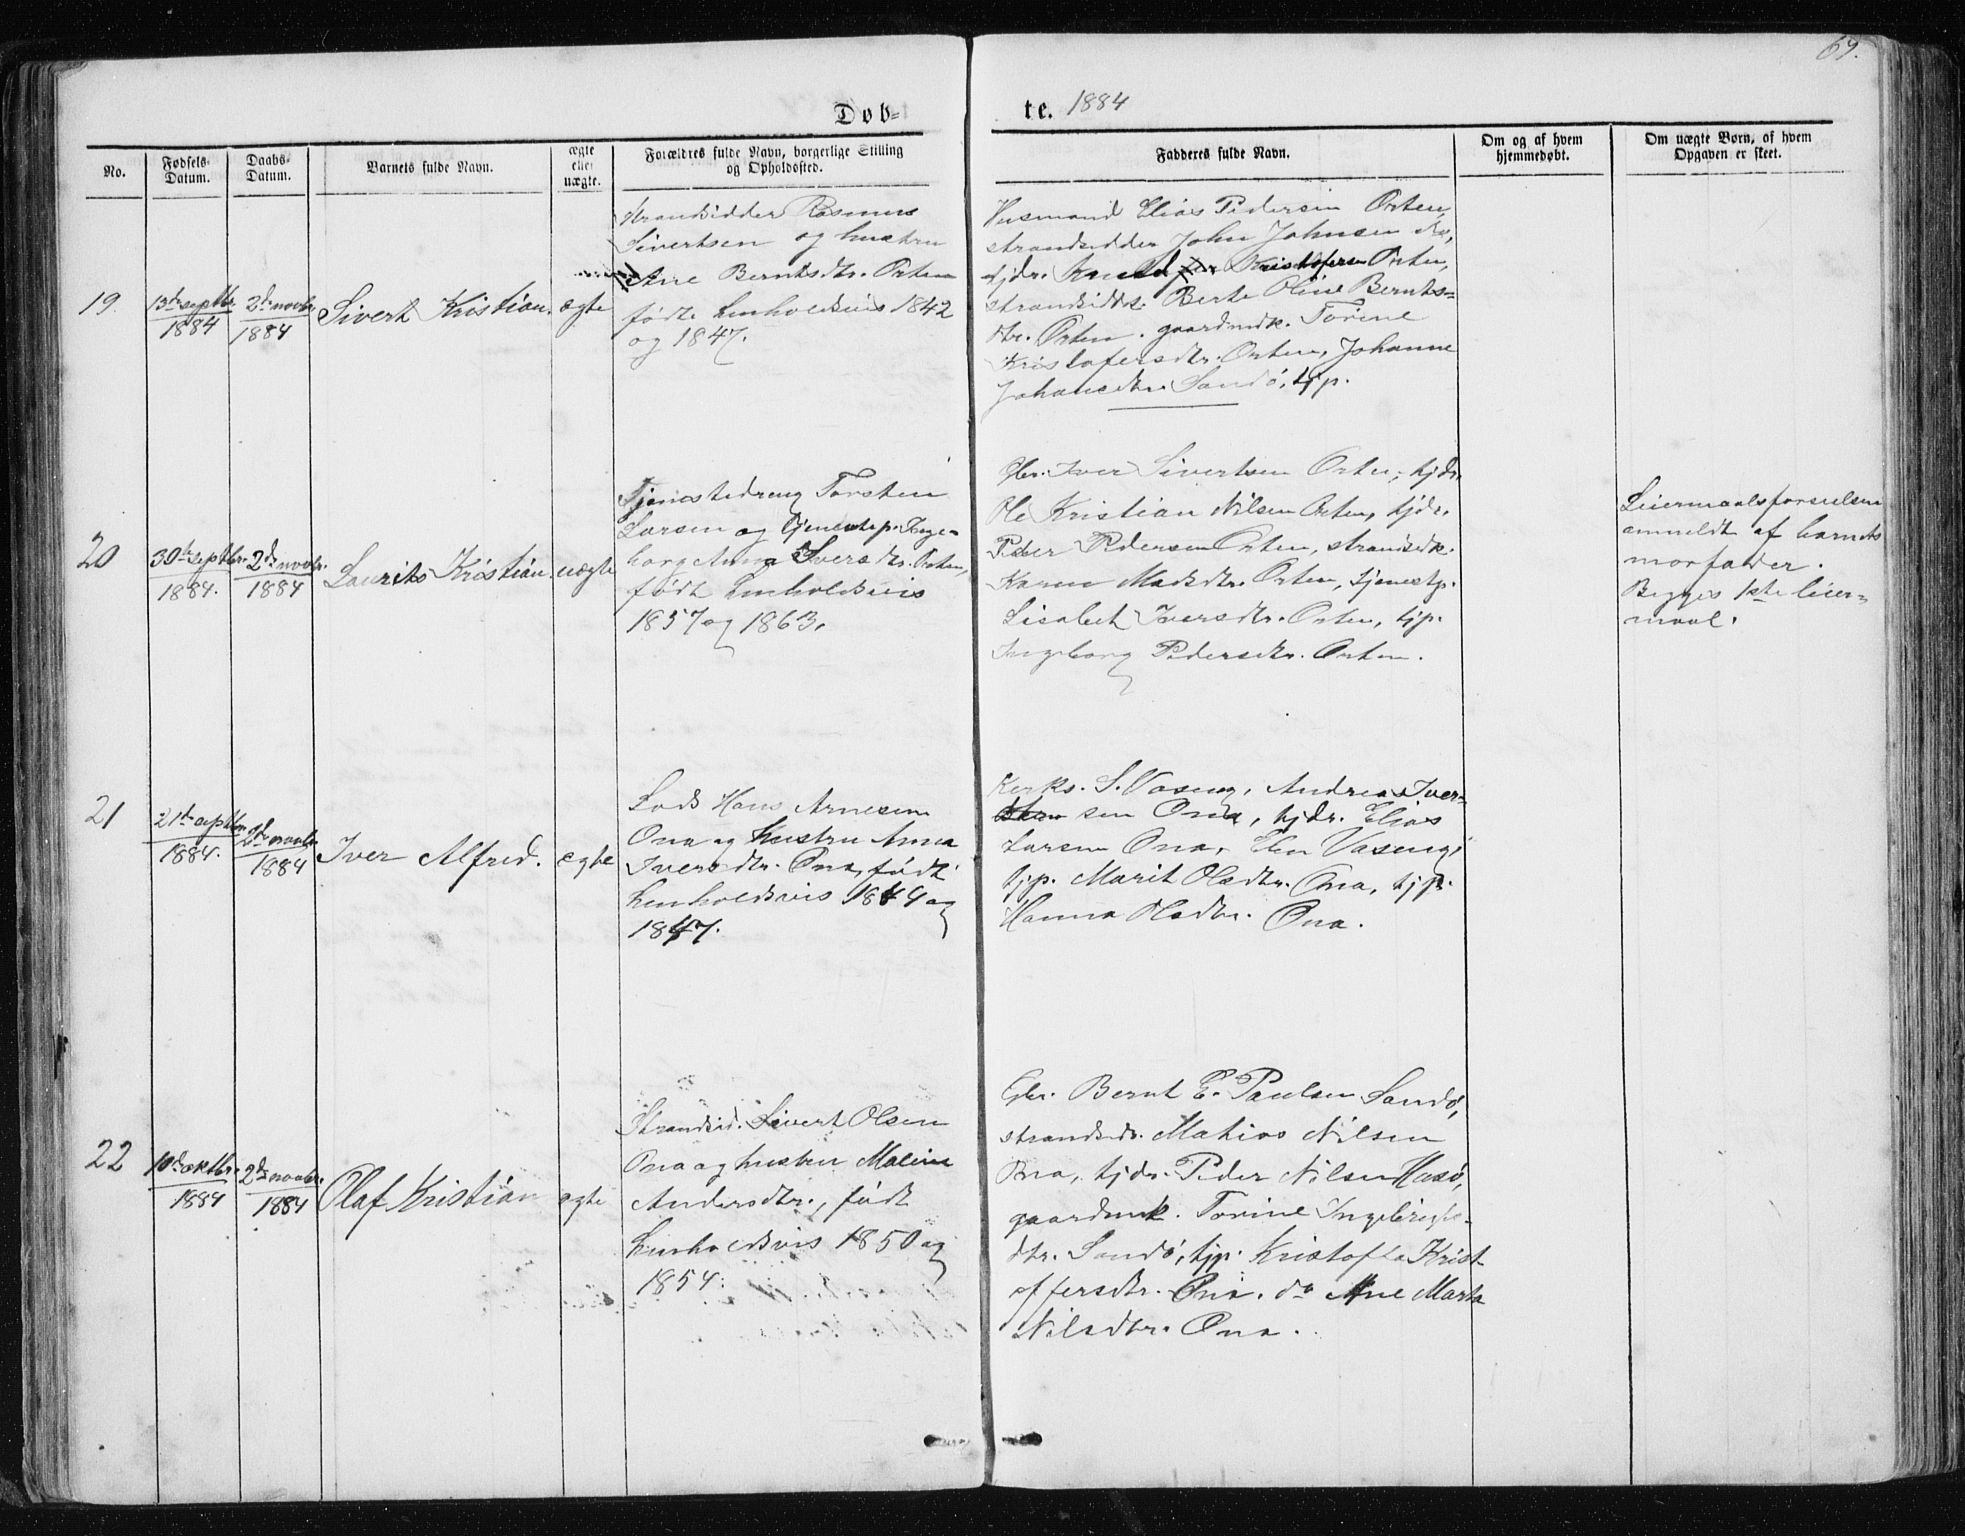 69.
Døb=
te. 1884
No.
Fødsels-
Datum.
Daabs-
Datum.
Barnets fulde Navn.
ægte
eller
uægte.
Forældres fulde Navn, borgerlige Stilling
og Opholdssted.
Fadderes fulde Navn.
Om og af hvem
hjemmedøbt.
Om uægte Børn, af hvem
Opgaven er skeet.
19.
13de septbr.
1884
2de novbr.
1884
Sivert Kristian.
ægte
Strandsidder Rasmus
Sivertsen og hustru
Ane Berntsdtr. Orten
født henholdsvis 1842
og 1847.
Husmand Elias Pedersen Orten,
strandsidder John Johnsen
tjdr. Knud Kristofersen Orten,
strandsidk. Berte Oline Bernts=
dtr. Orten. gaardmdk. Torine
Kristofersdtr. Orten, Johanne
Johansdtr. Sandø, tjp.
20
30te septbr.
1884.
2de novbr.
1884
Laurits Kristian.
uægte
Tjenestedreng Torsten
Larsen og tjenestep. Inge-
borg Anna Iversdtr. Orten,
født henholdsvis
1857 og 1863.
Gbr. Iver Sivertsen Orten, tjdr.
Ole Kristian Nilsen Orten, tjdr.
Peder Pedersen Orten, strandsidk.
Karen Madsdtr. Orten, tjenestp.
Lisabet Iversdtr. Orten, tjp.
Ingeborg Pedersdtr. Orten.
Leiermaalsforseelsen
anmeldt af barnets
morfader.
Begges 1ste leier=
maal.
21
21de septbr.
1884.
2de novbr.
1884
Iver Alfred.
ægte
Lods Hans Arnesen
Ona og hustru Anna
Iversdtr. Ona, født
henholdsvis 1849 og
1847.
Kirks. S. Vaseng, Andreas Iver-
sen Ona, tjdr. Elias
Larsen Ona, Elen Vaseng,
tjp. Marit Olsdtr. Ona, tjp.
Hanna Olsdtr. Ona.
22
10de oktbr.
1884
2de novbr.
1884
Olaf Kristian
ægte
Strandsid. Sivert Olsen
Ona og hustru Malene
Andersdtr., født
henholdsvis 1850 og
1854.
Gbr. Bernt E. Paulsen Sandø,
strandsds. Mathias Nilsen
Ona, tjdr. Peder Nilsen Husø,
gaardmk. Torine Ingebrigts-
dtr. Sandø, tjp. Kristofa Krist-
offersdtr. Ona. do Ane Marta
Nilsdtr. Ona.